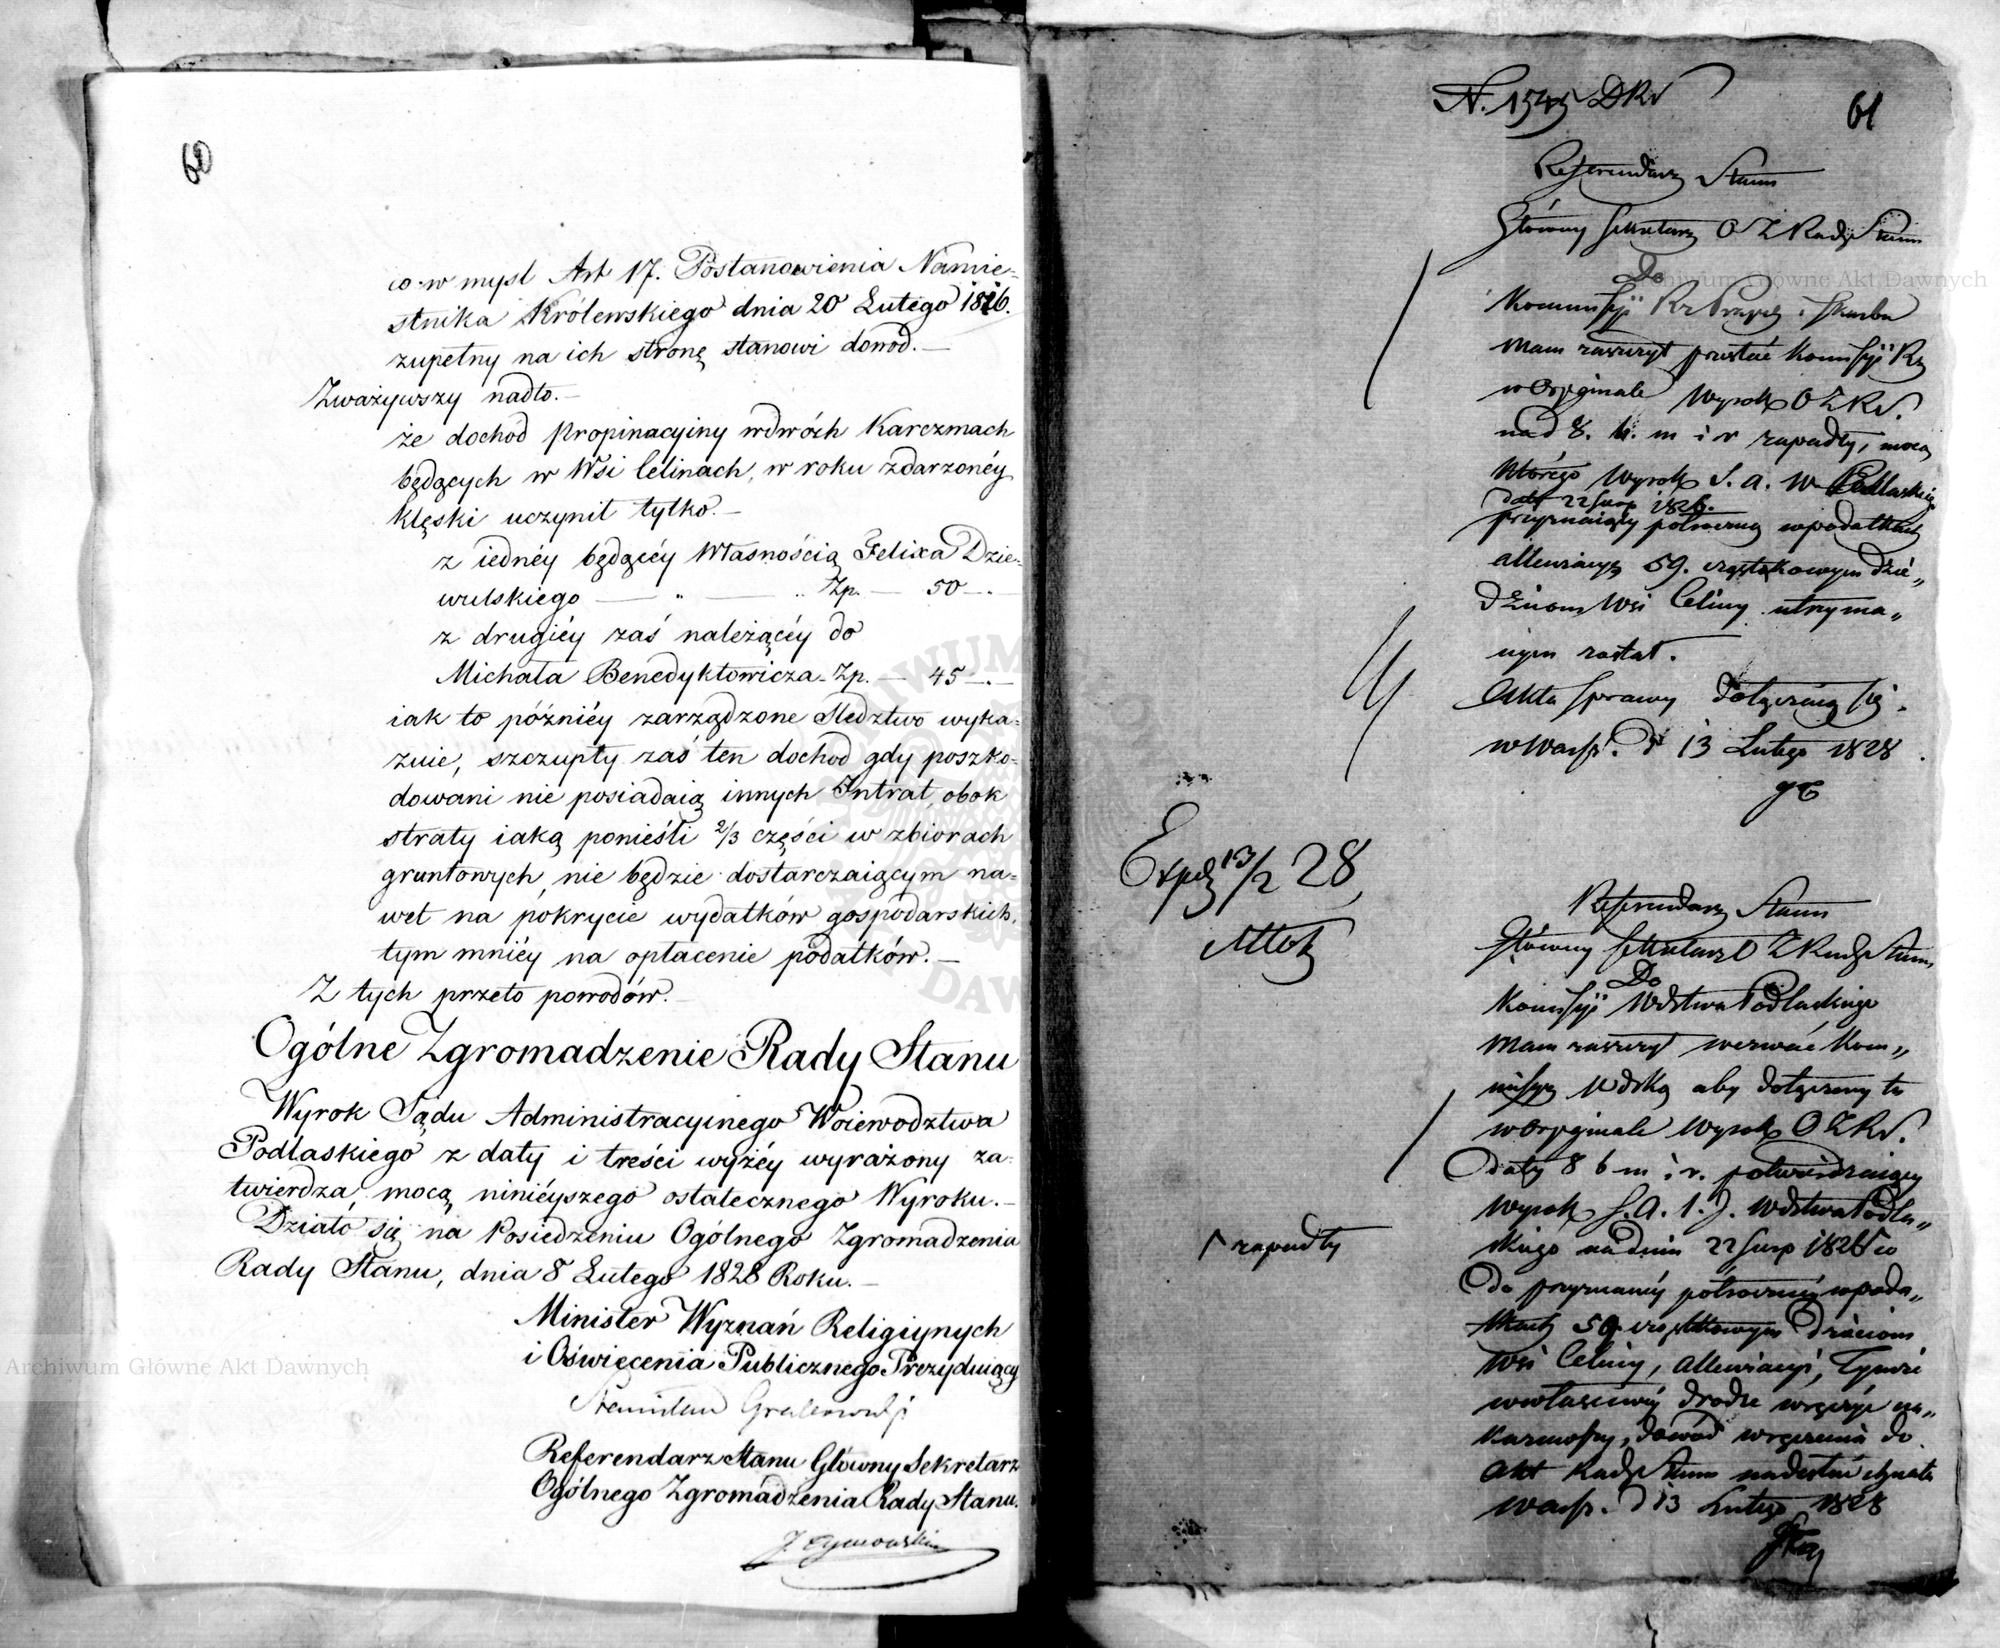 60
co w mysl Art 17. Postanowienia Namie-
stnika Królewskiego dnia 20 Lutego 1816.
zupełny na ich stronę stanowi dowod.—
Zważywszy nadto.—
że dochod propinacyiny wdwóch Karczmach
będących w Wsi Celinach, w roku zdarzonéy
klęski uczynił tylko.—
z iednéy będącéy Własnością Felixa Dzie-
wulskiego — " — " Zp. — 50 — .
z drugiéy zaś należącéy do
Michała Benedyktowicza - Zp. — 45 — . —
iak to późniéy zarządzone Sledztwo wyka-
zuie, szczupły zaś ten dochod gdy poszko-
dowani nie posiadaią innych Intrat, obok
straty iaką ponieśli 2/3 części w zbiorach
gruntowych, nie będzie dostarczaiącym na-
wet na pokrycie wydatków gospodarskich,
tym mniéy na opłacenie podatków.—
Z tych przeto powodów.—
Ogólne Zgromadzenie Rady Stanu
Wyrok Sądu Administracyinego Woiewodztwa
Podlaskiego z daty i treści wyżéy wyrażony za-
twierdza, mocą niniéyszego ostatecznego Wyroku.—
Działo się na Posiedzeniu Ogólnego Zgromadzenia
Rady Stanu, dnia 8 Lutego 1828 Roku.—
Minister Wyznań Religiynych
i Oświecenia Publicznego Prezyduiący
Stanisław Grabowski
Referendarz Stanu Główny Sekretarz
Ogólnego Zgromadzenia Rady Stanu.
J. Tymowski
N. 1545 DRS
61
Referendarz Stanu
Główny Sekretarz O Z Rady Stanu
Do
Kommissyi Rz Przych i Skarbu
Mam zaszczyt przesłać Komissyi Rz
w Oryginale Wyrok O Z R S.
na d 8. b. m i r zapadły, mocą
którego Wyrok S. A. W Podlaskiego
daty 22 Sierp 1826.
przyznaiący półroczną wpodatkach
allewiacyę 59. cząstkowym dzie„
dzicom Wsi Celiny utrzyma„
nym został.
Akta sprawy dołączaią się.
w Warsz. d 13 Lutego 1828
Exped 13/2 28
Referendarz Stanu
Główny Sekretarz O Z Rady Stanu
Do
Komissyi Wdztwa Podlaskiego
Mam zaszczyt wezwać Kom„
missyą Wdzką aby dołączony tu
w Oryginale Wyrok O Z R S.
daty 8 b m i r. potwierdzaiący
Wyrok S. A. I. J. Wdztwa Podla„
skiego na dniu 22 Sierp 1826 co
zapadły
do przyznanéy półrocznéy wpoda„
tkach 59 cząstkowym Dziedzicom
Wsi Celiny, allewiacyi, Tymże
wwłaściwéy drodze wręczyć na„
kazawszy, dowód wręczenia do
Akt Rady Stanu nadesłać chciała
Warsz. d 13 Lutego 1828
Archiwum Główne Akt Dawnych
Archiwum Główne Akt Dawnych